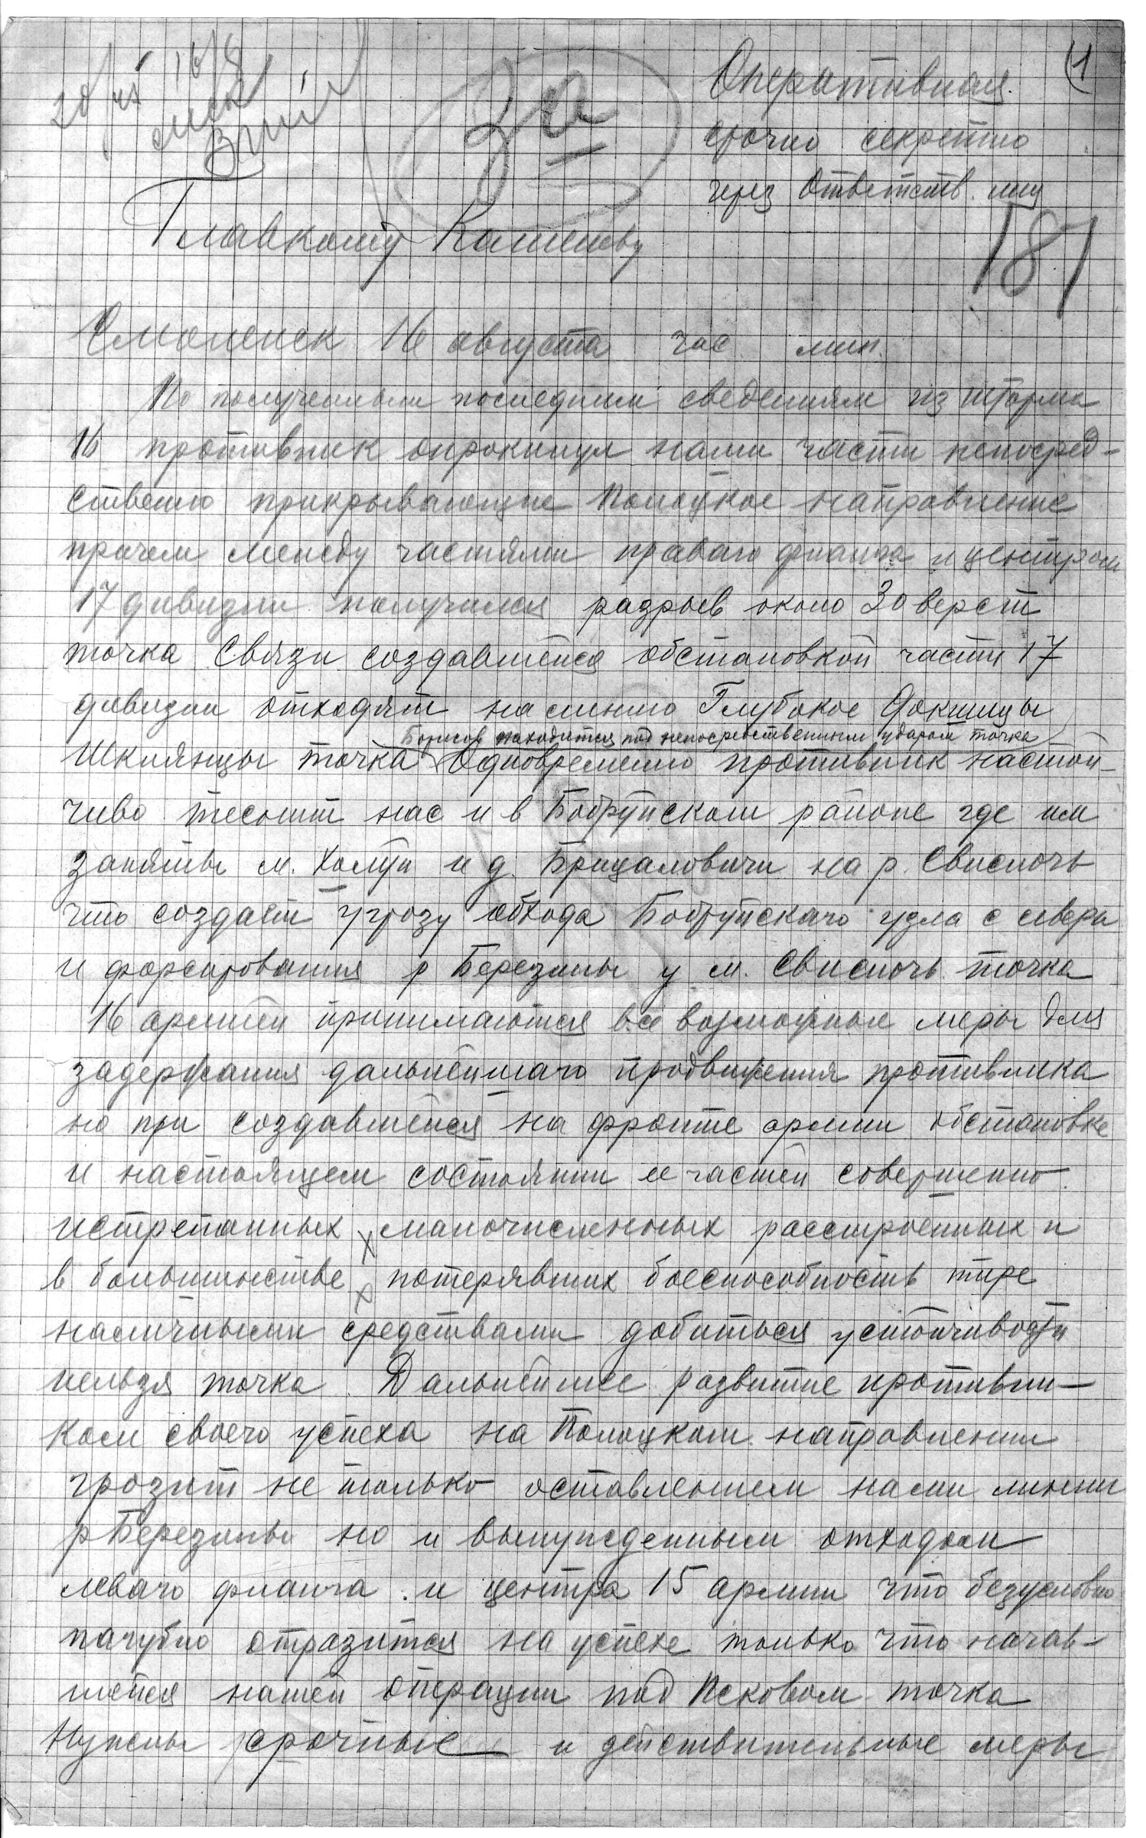 1
Оперативная
срочно секретно
через ответств. лицо
16/8
3а
Главкому Каменеву
181
Смоленск 16 августа час мин.
По полученным последним сведениям из штарма
16 противник опрокинул наши части непосред-
ственно прикрывающие Полоцкое направление
причем между частями праваго фланга и центром
17 дивизии получился разрыв около 30 верст
точка Связи создавшейся обстановкой части 17
дивизии отходят на линию Глубокое Докшицы
Борисов находится под непосредственным ударом точка
Шклянцы точка Одновременно противник настой-
чиво теснит нас и в Бобруйском районе где им
заняты м. Холуи и д. Брицаловичи на р. Свислочь
что создает угрозу обхода Бобруйскаго узла с севера
и форсирования р Березины у м. Свислочь точка
16 армией принимаются все возможные меры для
задержания дальнейшаго продвижения противника
но при создавшейся на фронте армии обстановке
и настоящем состоянии ея частей совершенно
истрепанных малочисленных расстроенных и
в большинстве потерявших боеспособность тире
наличными средствами добиться устойчивости
нельзя точка Дальнейшее развитие противни-
ком своего успеха на Полоцком направлении
грозит не только оставлением нами линии
р Березины но и вынужденным отходом
леваго фланга и центра 15 армии что безусловно
пагубно отразится на успехе только что начав-
шейся нашей операции под Псковом точка
Нужны срочные и действительные меры